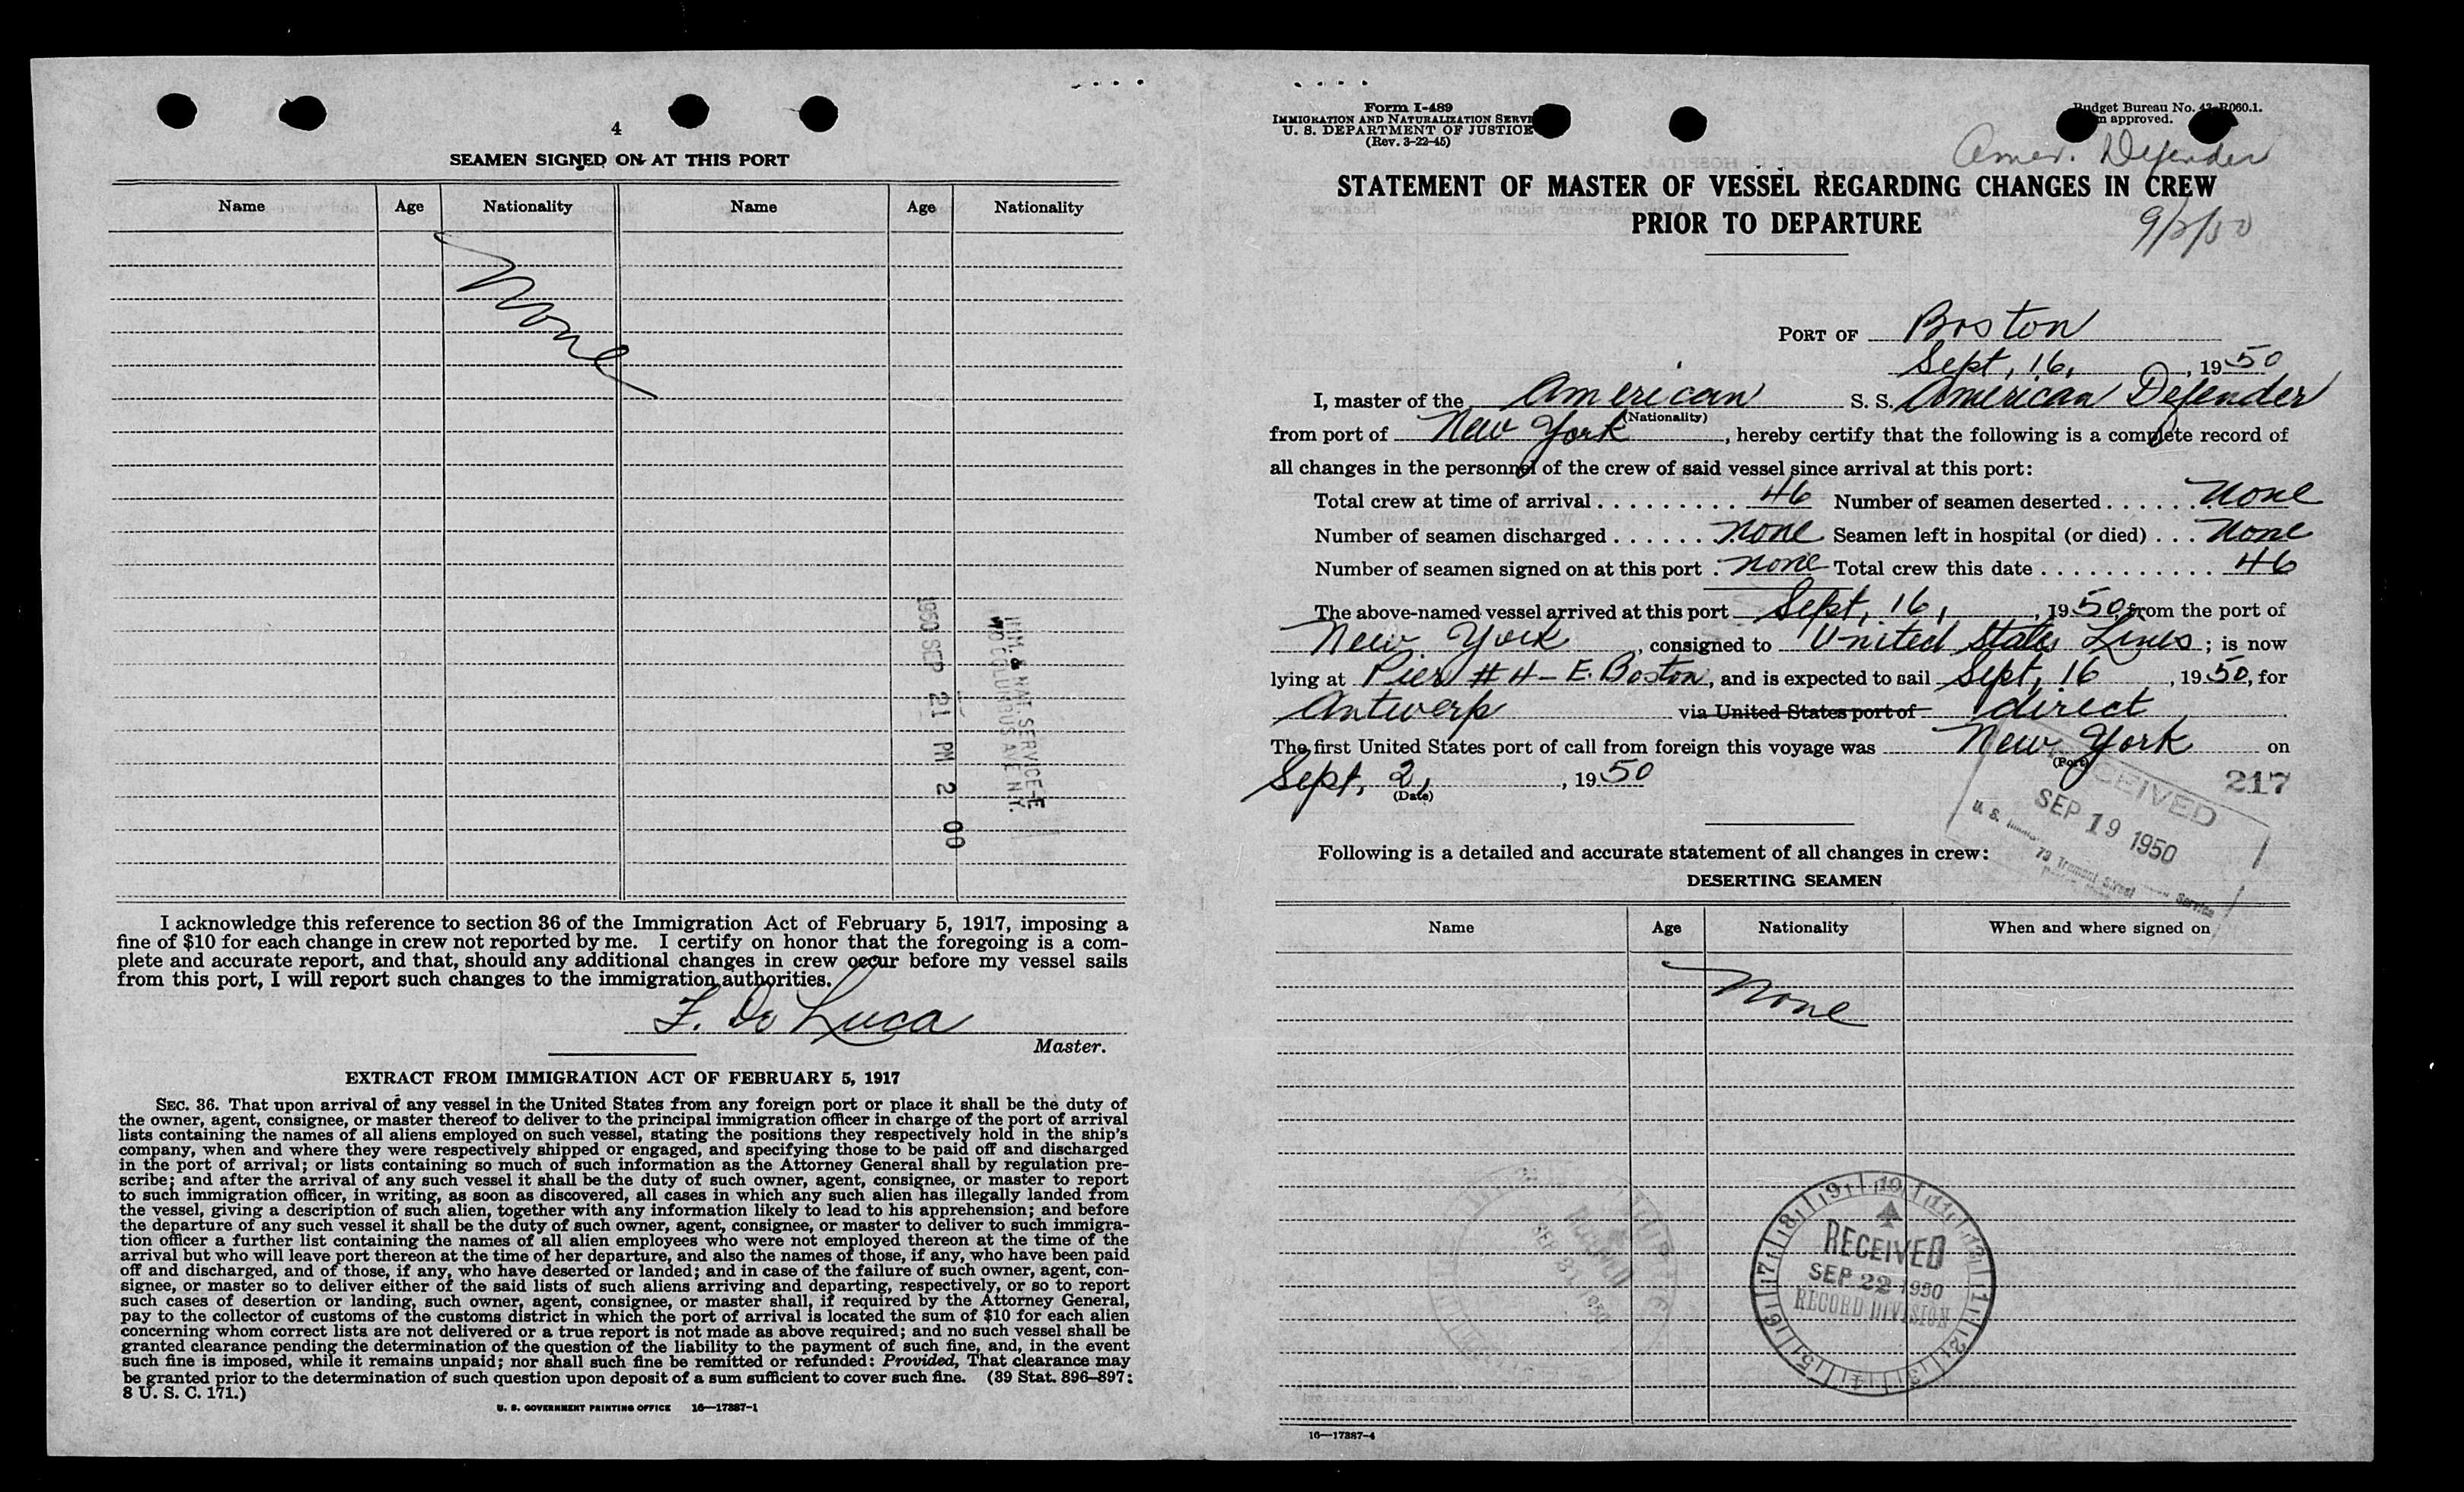 4
SEAMEN SIGNED ON AT THIS PORT
Name Age Nationality Name Age Nationality
None
1950 SEP 21 PM 2 00
IMM. & NAT. SERVICE
COLUMBUS AVE N.Y.
I acknowledge this reference to section 36 of the Immigration Act of February 5, 1917, imposing a
fine of $10 for each change in crew not reported by me. I certify on honor that the foregoing is a com-
plete and accurate report, and that, should any additional changes in crew occur before my vessel sails
from this port, I will report such changes to the immigration authorities.
F. De Luca
Master.
EXTRACT FROM IMMIGRATION ACT OF FEBRUARY 5, 1917
SEC. 36. That upon arrival of any vessel in the United States from any foreign port or place it shall be the duty of
the owner, agent, consignee, or master thereof to deliver to the principal immigration officer in charge of the port of arrival
lists containing the names of all aliens employed on such vessel, stating the positions they respectively hold in the ship's
company, when and where they were respectively shipped or engaged, and specifying those to be paid off and discharged
in the port of arrival; or lists containing so much of such information as the Attorney General shall by regulation pre-
scribe; and after the arrival of any such vessel it shall be the duty of such owner, agent, consignee, or master to report
to such immigration officer, in writing, as soon as discovered, all cases in which any such alien has illegally landed from
the vessel, giving a description of such alien, together with any information likely to lead to his apprehension; and before
the departure of any such vessel it shall be the duty of such owner, agent, consignee, or master to deliver to such immigra-
tion officer a further list containing the names of all alien employees who were not employed thereon at the time of the
arrival but who will leave port thereon at the time of her departure, and also the names of those, if any, who have been paid
off and discharged, and of those, if any, who have deserted or landed; and in case of the failure of such owner, agent, con-
signee, or master so to deliver either of the said lists of such aliens arriving and departing, respectively, or so to report
such cases of desertion or landing, such owner, agent, consignee, or master shall, if required by the Attorney General,
pay to the collector of customs of the customs district in which the port of arrival is located the sum of $10 for each alien
concerning whom correct lists are not delivered or a true report is not made as above required; and no such vessel shall be
granted clearance pending the determination of the question of the liability to the payment of such fine, and, in the event
such fine is imposed, while it remains unpaid; nor shall such fine be remitted or refunded: Provided, That clearance may
be granted prior to the determination of such question upon deposit of a sum sufficient to cover such fine. (39 Stat. 896–897;
8 U. S. C. 171.)
U. S. GOVERNMENT PRINTING OFFICE 16—17387-1
Form I-489
IMMIGRATION AND NATURALIZATION SERVI
U. S. DEPARTMENT OF JUSTICE
(Rev. 3-22-45)
Budget Bureau No. 43-R060.1.
approved.
Amer. Defender
STATEMENT OF MASTER OF VESSEL REGARDING CHANGES IN CREW
PRIOR TO DEPARTURE
9/2/50
PORT OF Boston
Sept, 16, , 1950
I, master of the American S. S. American Defender
(Nationality)
from port of New York , hereby certify that the following is a complete record of
all changes in the personnel of the crew of said vessel since arrival at this port:
Total crew at time of arrival . . . . . . . . . . 46 Number of seamen deserted . . . . . . . None
Number of seamen discharged . . . . . . None Seamen left in hospital (or died) . . . None
Number of seamen signed on at this port . None Total crew this date . . . . . . . . . . . . 46
The above-named vessel arrived at this port Sept, 16, , 1950, from the port of
New York , consigned to United States Lines ; is now
lying at Pier # 4 - E. Boston, and is expected to sail Sept, 16 , 1950, for
Antwerp via United States port of direct
The first United States port of call from foreign this voyage was New York on
(Port)
Sept, 2, , 1950
(Date)
217
RECEIVED
SEP 19 1950
U. S. Service
73 Tremont Street
Following is a detailed and accurate statement of all changes in crew:
DESERTING SEAMEN
Name Age Nationality When and where signed on
None
RECEIVED
SEP 22 1950
RECORD DIVISION
16—17387-4